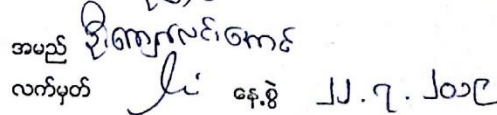 အမည် ဦးကျော်လင်းအောင်
လက်မှတ် နေ့စွဲ ၂၂.၇.၂၀၁၉